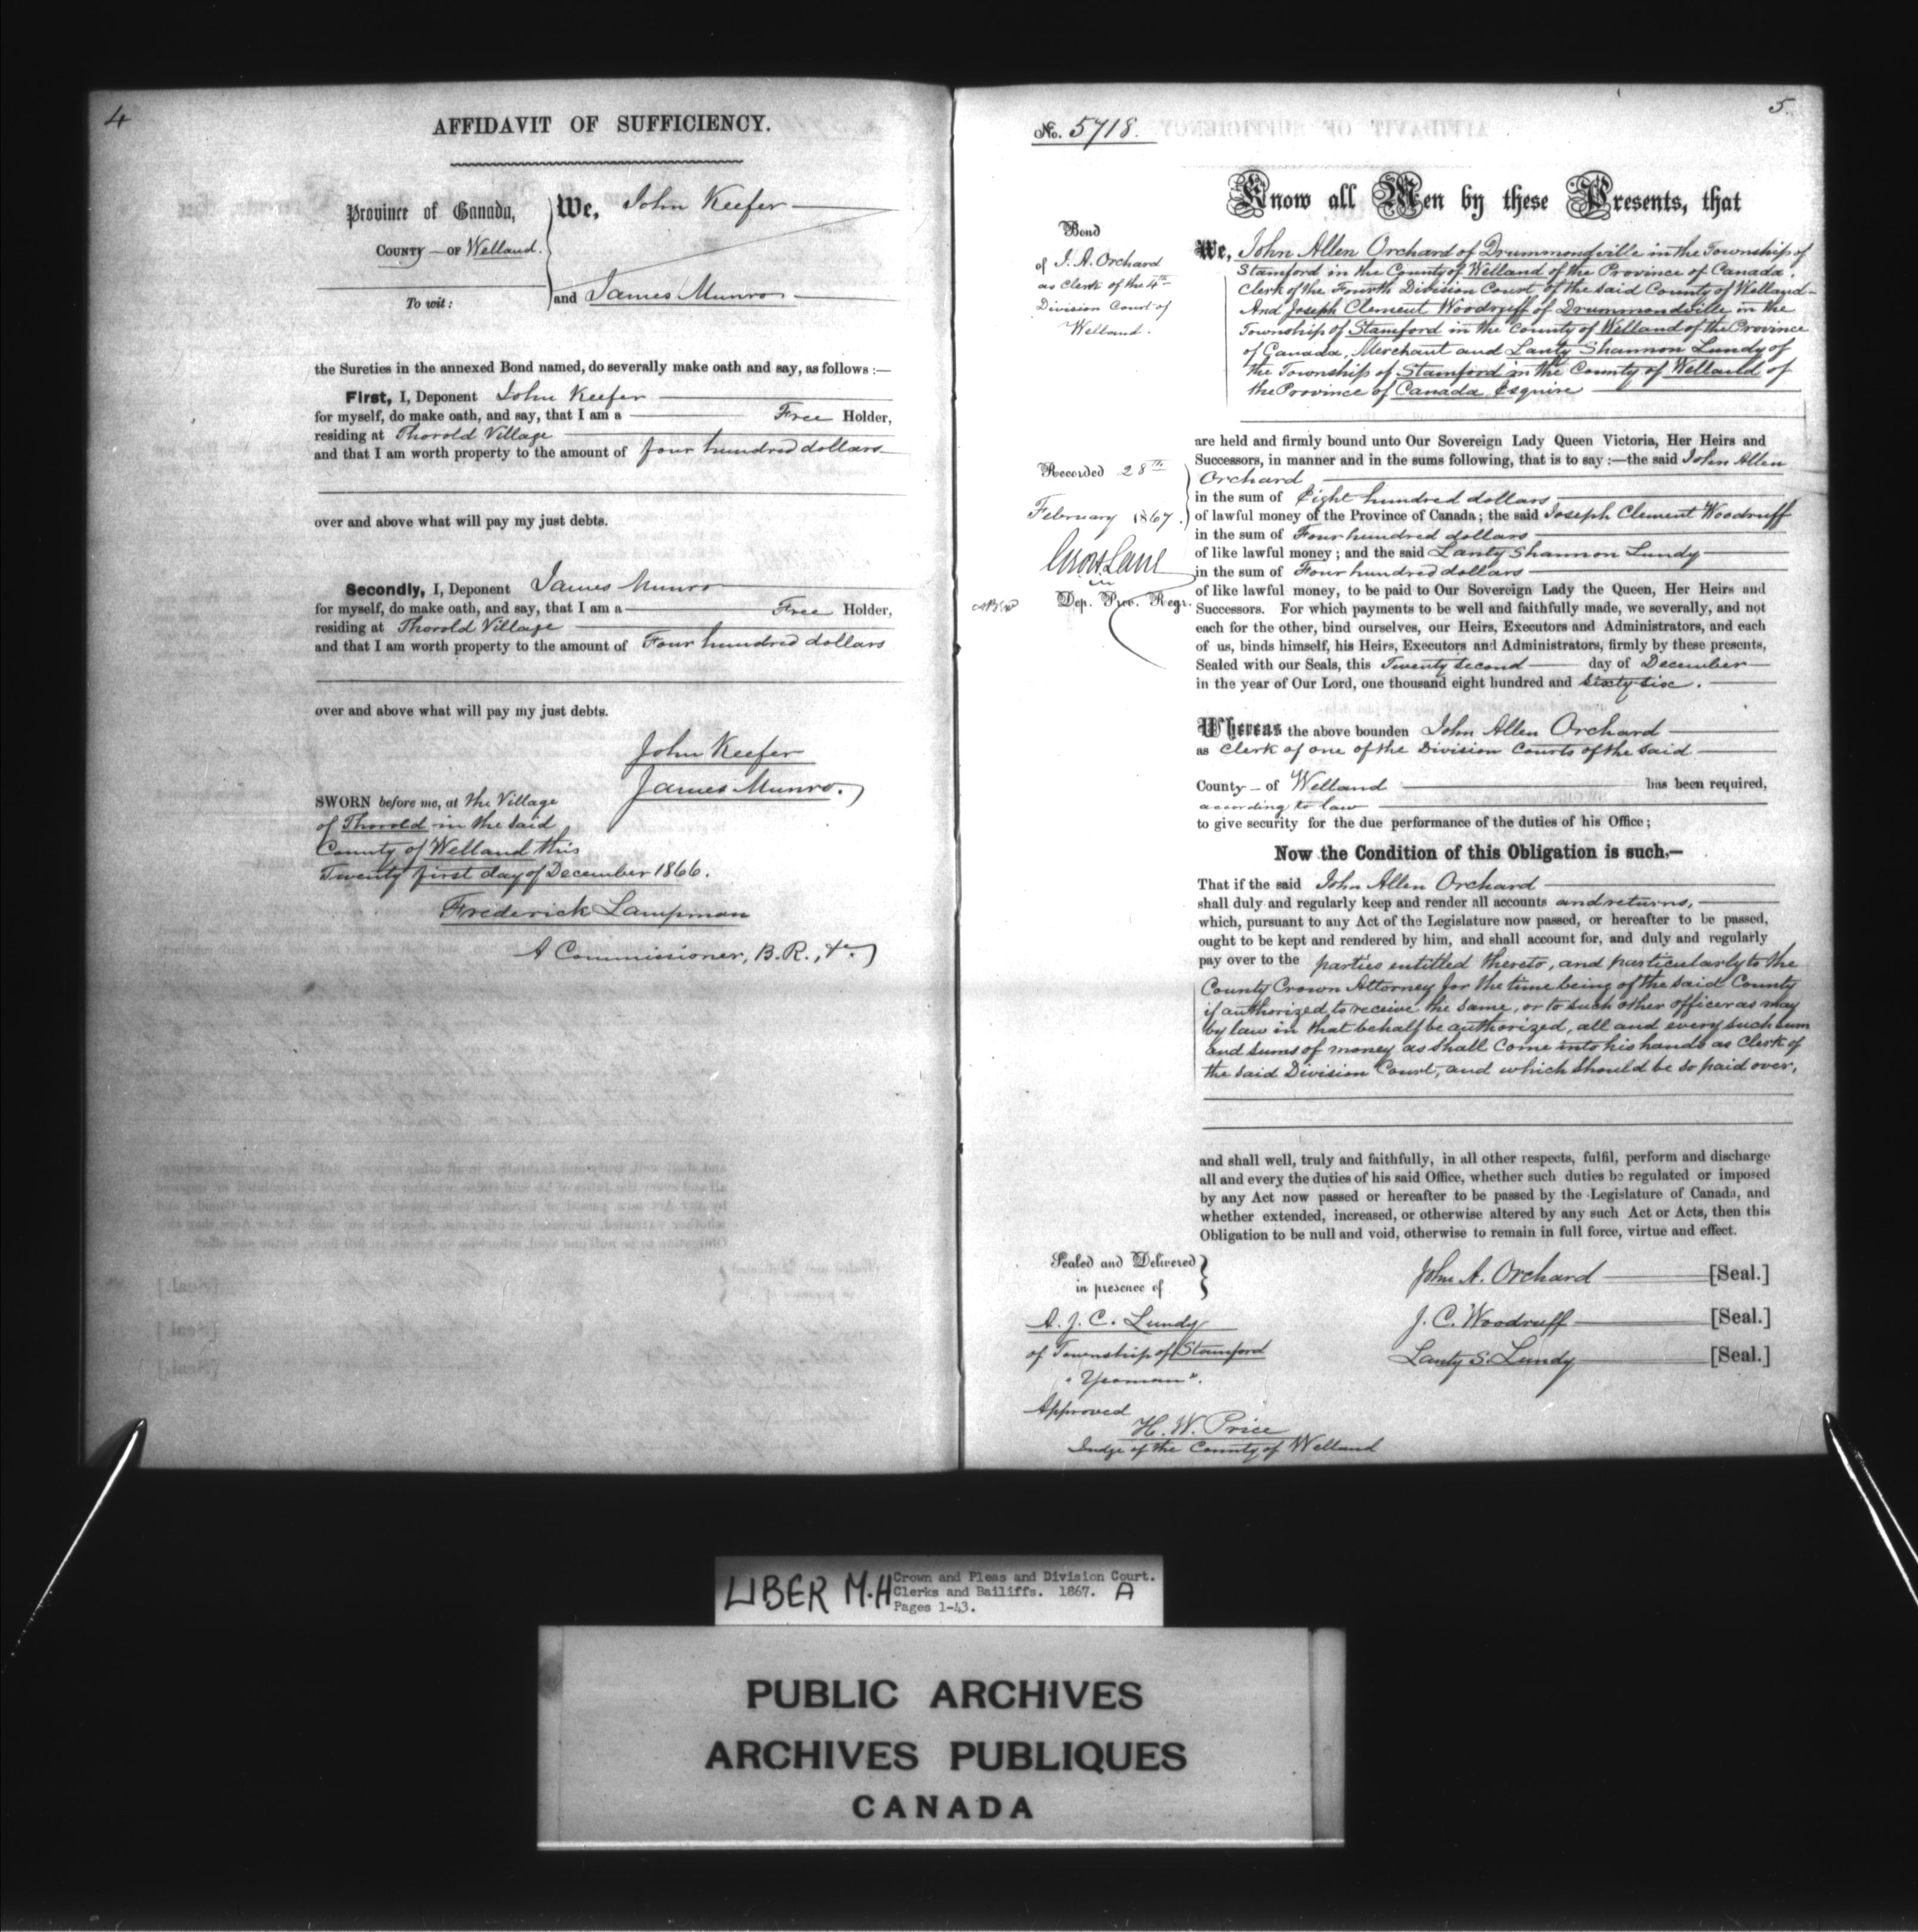 4
AFFIDAVIT OF SUFFICIENCY.
Province of Canada,
County of Welland.
To wit:
We, John Keefer
and James Munro
the Sureties in the annexed Bond named, do severally make oath and say, as follows :—
First, I, Deponent John Keefer
for myself, do make oath, and say, that I am a Free Holder,
residing at Thorold Village
and that I am worth property to the amount of four hundred dollars
over and above what will pay my just debts.
Secondly, I, Deponent James Munro
for myself, do make oath, and say, that I am a Free Holder,
residing at Thorold Village
and that I am worth property to the amount of Four hundred dollars
over and above what will pay my just debts.
John Keefer
James Munro.
SWORN before me, at the Village
of Thorold in the said
County of Welland this
Twenty first day of December 1866.
Frederick Lampman
A Commissioner, B.R., &c.
5.
No. 5718.
Know all Men by these Presents, that
Bond
of J. A. Orchard
as Clerk of the 4th
Division Court of
Welland.
We, John Allen Orchard of Drummondville in the Township of
Stamford in the County of Welland of the Province of Canada,
Clerk of the Fourth Division Court of the said County of Welland
And Joseph Clement Woodruff of Drummondville in the
Township of Stamford in the County of Welland of the Province
of Canada, Merchant and Lanty Shannon Lundy of
the Township of Stamford in the County of Welland of
the Province of Canada Esquire
are held and firmly bound unto Our Sovereign Lady Queen Victoria, Her Heirs and
Successors, in manner and in the sums following, that is to say :—the said John Allen
Orchard
in the sum of Eight hundred dollars
of lawful money of the Province of Canada; the said Joseph Clement Woodruff
in the sum of Four hundred dollars
of like lawful money; and the said Lanty Shannon Lundy
in the sum of Four hundred dollars
of like lawful money, to be paid to Our Sovereign Lady the Queen, Her Heirs and
Successors. For which payments to be well and faithfully made, we severally, and not
each for the other, bind ourselves, our Heirs, Executors and Administrators, and each
of us, binds himself, his Heirs, Executors and Administrators, firmly by these presents,
Sealed with our Seals, this Twenty second day of December
in the year of Our Lord, one thousand eight hundred and sixty six.
Recorded 28th
February 1867.
Dep. Prov. Regr.
Whereas the above bounden John Allen Orchard
as Clerk of one of the Division Courts of the said
County of Welland has been required,
according to law
to give security for the due performance of the duties of his Office;
Now the Condition of this Obligation is such,—
That if the said John Allen Orchard
shall duly and regularly keep and render all accounts and returns,
which, pursuant to any Act of the Legislature now passed, or hereafter to be passed,
ought to be kept and rendered by him, and shall account for, and duly and regularly
pay over to the parties entitled thereto, and particularly to the
County Crown Attorney for the time being of the said County
if authorized to receive the same, or to such other officer as may
by law in that behalf be authorized, all and every such sum
and sums of money as shall come into his hands as Clerk of
the said Division Court, and which should be so paid over,
and shall well, truly and faithfully, in all other respects, fulfil, perform and discharge
all and every the duties of his said Office, whether such duties be regulated or imposed
by any Act now passed or hereafter to be passed by the Legislature of Canada, and
whether extended, increased, or otherwise altered by any such Act or Acts, then this
Obligation to be null and void, otherwise to remain in full force, virtue and effect.
Sealed and Delivered
in presence of
A. J. C. Lundy
of Township of Stamford
"Yeoman".
John A. Orchard [Seal.]
J. C. Woodruff [Seal.]
Lanty S. Lundy [Seal.]
Approved
H. W. Price
Judge of the County of Welland
LIBER M.H
Crown and Pleas and Division Court.
Clerks and Bailiffs. 1867. A
Pages 1-43.
PUBLIC ARCHIVES
ARCHIVES PUBLIQUES
CANADA